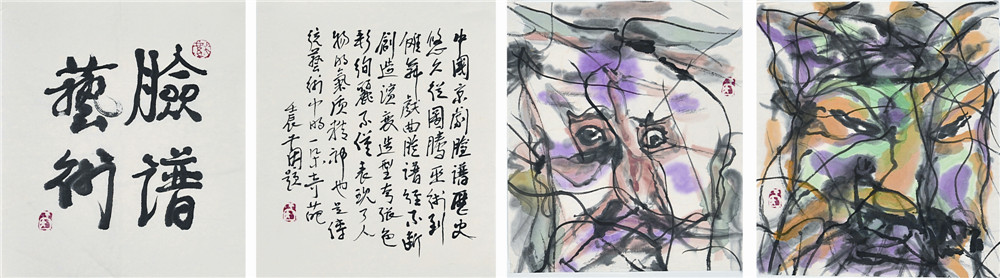 臉譜
藝術
中國京劇臉譜歷史
悠久從圖騰巫術到
傩舞戲曲臉譜經不斷
創造演變造型夸張色
彩絢麗不僅表現了人
物的氣质精神也是傳
統藝術中的一朵奇苑
壬辰 題